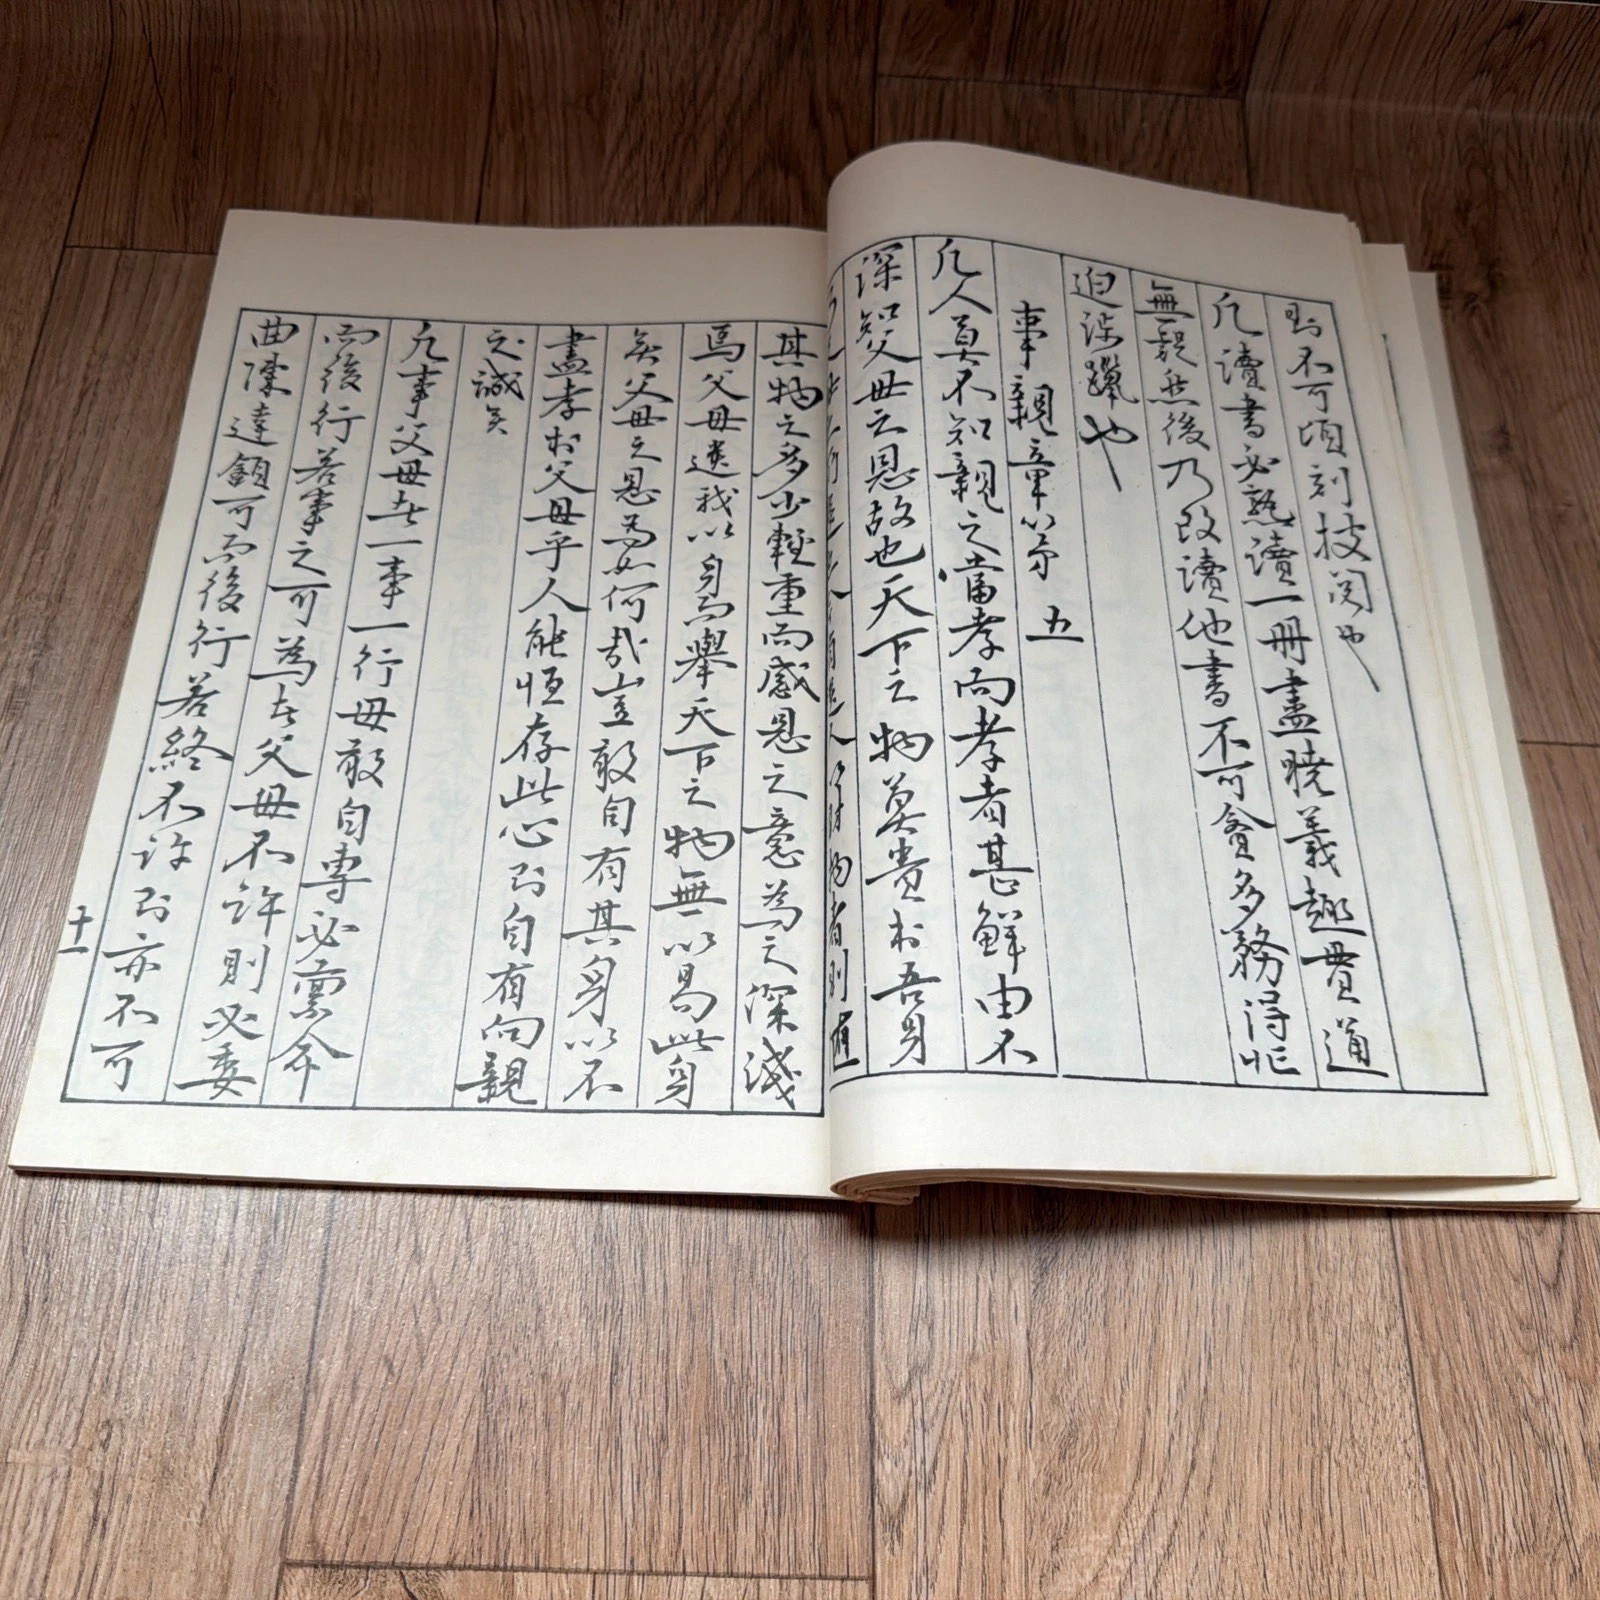 則不可頃刻披閱也
凡讀書必熟讀一冊盡曉義趣貫通
無疑然後乃改讀他書不可貪多務得忙
迫涉獵也
事親章第五
凡人莫不知親之當孝而孝者甚鮮由不
深知父母之恩故也天下之物莫貴於吾身
人以財物者則隨
其物之多少輕重而感恩之意為之深淺
焉父母遺我以身而擧天下之物無以易此身
矣父母之恩為如何哉豈敢自有其身以不
盡孝於父母乎人能恒存此心則自有向親
之誠矣
凡事父母者一事一行毋敢自專必稟命
而後行若事之可為者父母不許則必委
曲陳達頷可而後行若終不許則亦不可
十一